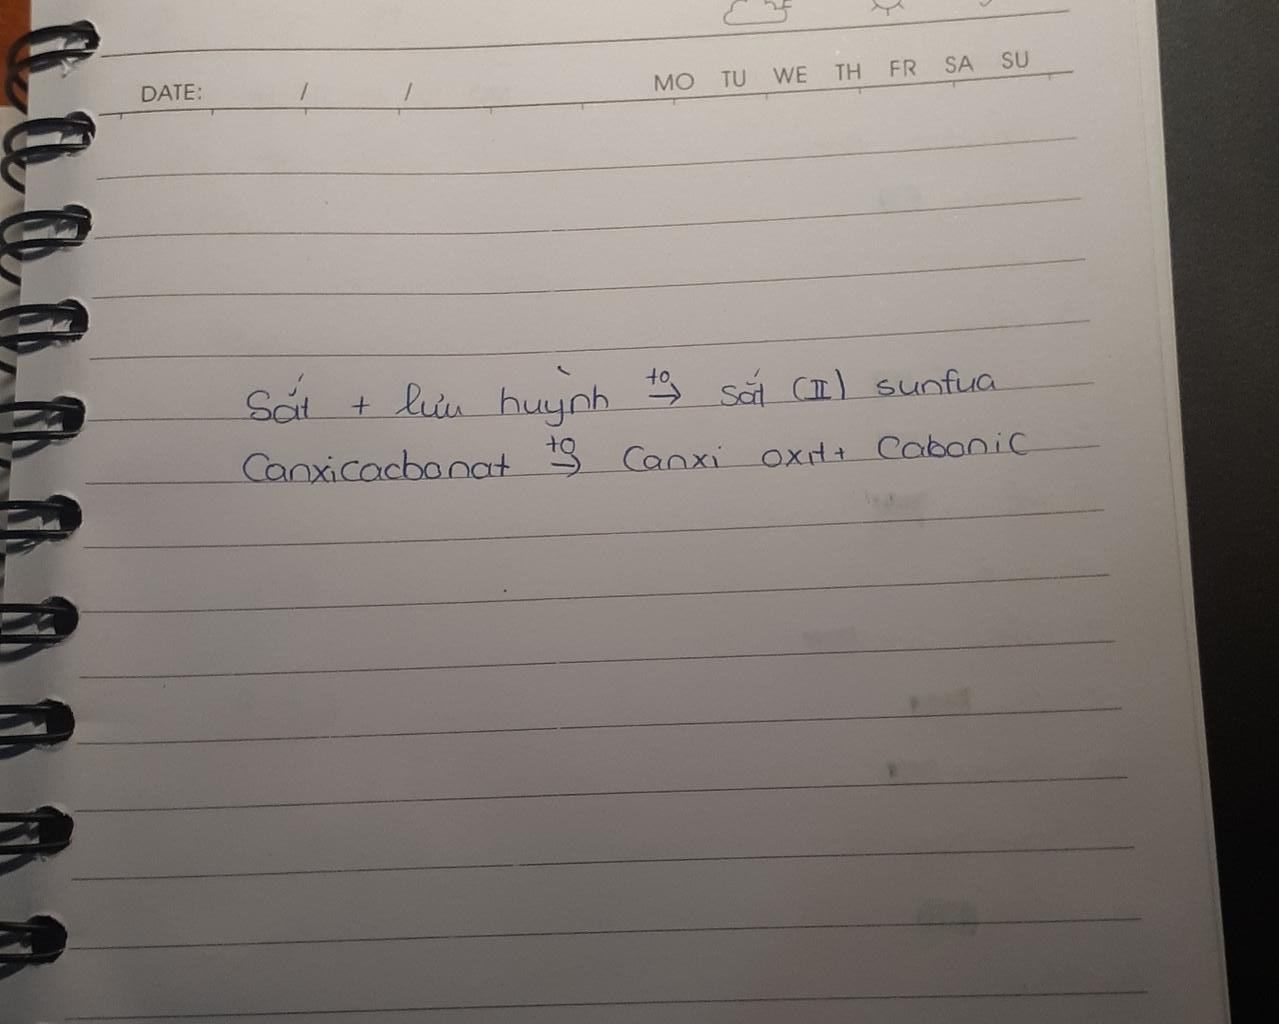 DATE: / / MO TU WE TH FR SA SU
Sắt + lưu huỳnh to→ sắt (II) sunfua
Canxicacbonat to→ Canxi oxit + Cabonic